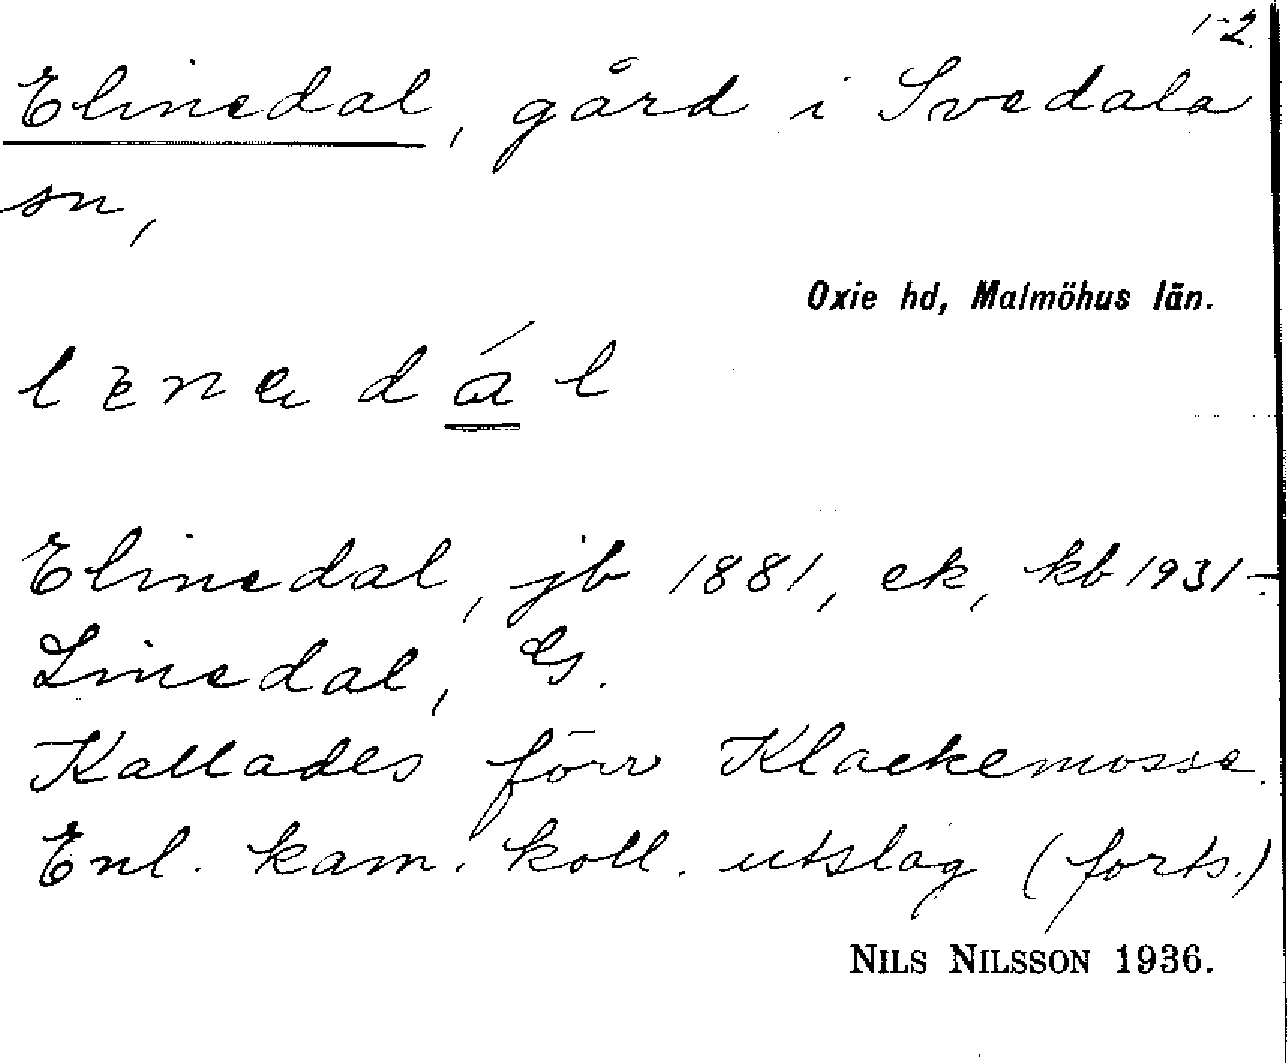 1-2.
Elinedal, gård i Svedala
sn,
Oxie hd, Malmöhus län.
Elinedal, jb 1881, ek, kb 1931-.
Linedal, GS.
Kallades förr Klackemosse.
Enl. kam. koll. utslag (forts.)
NILS NILSSON 1936.